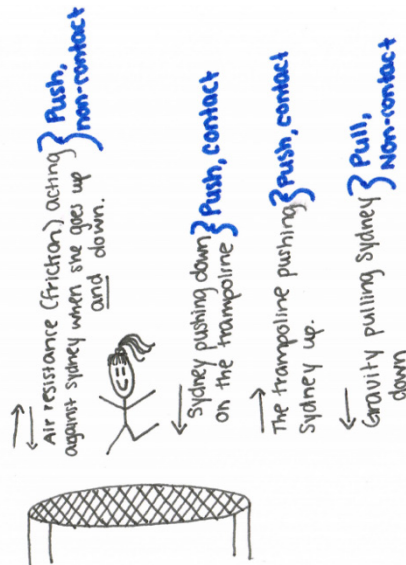 Air resistance (friction) acting
against Sydney when she goes up
and down.
Push,
non-contact
Sydney pushing down
on the trampoline
Push, contact
The trampoline pushing
Sydney up.
Push, contact
Gravity pulling Sydney
down
Pull,
Non-contact